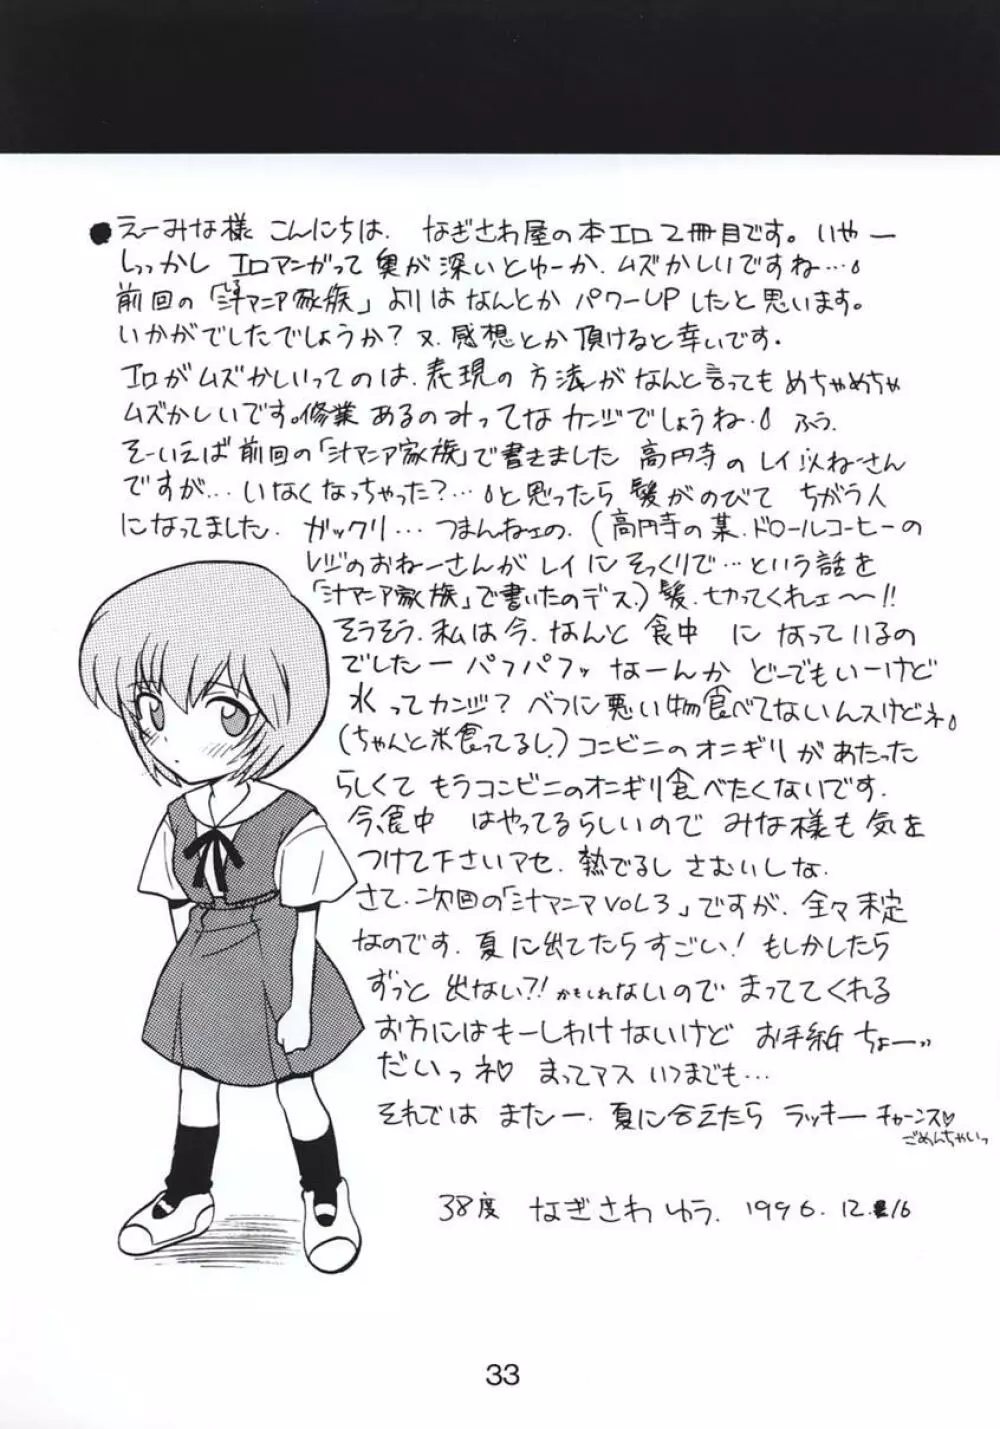 ●えーみな様 こんにちは、なぎさわ屋の本エロ2冊目です。いやー
しっかし エロマンガって 奥が深いとゆーか、ムズかしいですね…
前回の「汁マニア家族」よりは なんとか パワーUPしたと思います。
いかがでしたでしょうか? 又、感想とか頂けると幸いです。
エロがムズかしいってのは、表現の方法がなんと言ってもめちゃめちゃ
ムズかしいです。修業あるのみってなカンジでしょうね。ふう、
そーいえば前回の「汁マニア家族」で書きました 高円寺のレイ似ねーさん
ですが… いなくなっちゃった?…と思ったら髪がのびて ちがう人
になってました。ガックリ… つまんねェの、(高円寺の某、ドロールコーヒーの
レジのおねーさんがレイにそっくりで…という話を
「汁マニア家族」で書いたのデス。)髪、切ってくれェ〜〜!!
そうそう、私は今、なんと 食中 に なっているの
でしたー パフパフッ なーんか どーでもいーけど
水ってカンジ? べつに悪い物食べてないんスけどネ。
(ちゃんと米食ってるし)コンビニのオニギリがあたった
らしくて もうコンビニのオニギリ食べたくないです。
今、食中 はやってるらしいので みな様も気を
つけて下さいマセ、熱でるし さむいしな、
さて、次回の「汁マニアVOL3」ですが、全々未定
なのです、夏に出てたらすごい! もしかしたら
ずっと 出ない?! かもしれないので まっててくれる
お方にはもーしわけないけど お手紙ちょーッ
だいっネ♡ まってマス いつまでも…
それでは またー、夏に会えたら ラッキー チャーンス♡
ごめんちゃいっ
38度 なぎさわ ゆう、1996.12.16
33